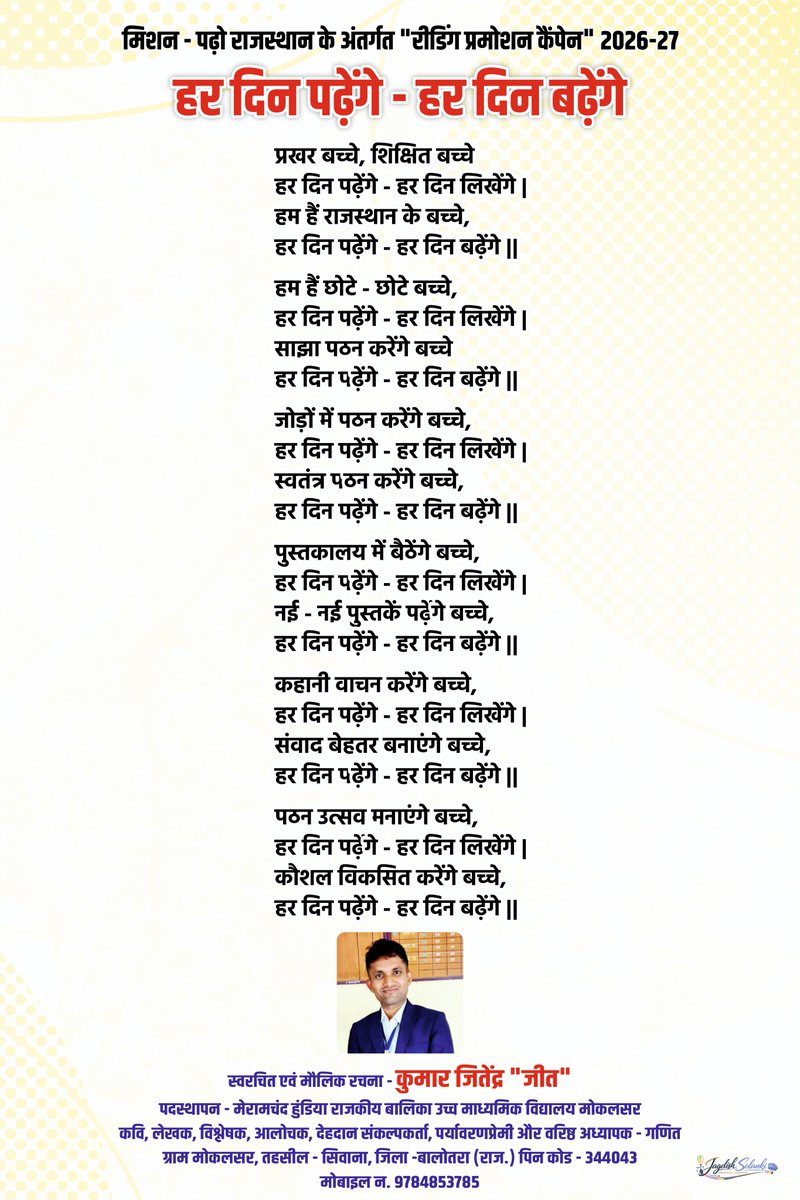 मिशन - पढ़ो राजस्थान के अंतर्गत "रीडिंग प्रमोशन कैंपेन" 2026-27
हर दिन पढ़ेंगे - हर दिन बढ़ेंगे
प्रखर बच्चे, शिक्षित बच्चे
हर दिन पढ़ेंगे - हर दिन लिखेंगे |
हम हैं राजस्थान के बच्चे,
हर दिन पढ़ेंगे - हर दिन बढ़ेंगे ||
हम हैं छोटे - छोटे बच्चे,
हर दिन पढ़ेंगे - हर दिन लिखेंगे |
साझा पठन करेंगे बच्चे
हर दिन पढ़ेंगे - हर दिन बढ़ेंगे ||
जोड़ों में पठन करेंगे बच्चे,
हर दिन पढ़ेंगे - हर दिन लिखेंगे |
स्वतंत्र पठन करेंगे बच्चे,
हर दिन पढ़ेंगे - हर दिन बढ़ेंगे ||
पुस्तकालय में बैठेंगे बच्चे,
हर दिन पढ़ेंगे - हर दिन लिखेंगे |
नई - नई पुस्तकें पढ़ेंगे बच्चे,
हर दिन पढ़ेंगे - हर दिन बढ़ेंगे ||
कहानी वाचन करेंगे बच्चे,
हर दिन पढ़ेंगे - हर दिन लिखेंगे |
संवाद बेहतर बनाएंगे बच्चे,
हर दिन पढ़ेंगे - हर दिन बढ़ेंगे ||
पठन उत्सव मनाएंगे बच्चे,
हर दिन पढ़ेंगे - हर दिन लिखेंगे |
कौशल विकसित करेंगे बच्चे,
हर दिन पढ़ेंगे - हर दिन बढ़ेंगे ||
स्वरचित एवं मौलिक रचना - कुमार जितेंद्र "जीत"
पदस्थापन - मेरामचंद हुंडिया राजकीय बालिका उच्च माध्यमिक विद्यालय मोकलसर
कवि, लेखक, विश्लेषक, आलोचक, देहदान संकल्पकर्ता, पर्यावरणप्रेमी और वरिष्ठ अध्यापक - गणित
ग्राम मोकलसर, तहसील - सिवाना, जिला -बालोतरा (राज.) पिन कोड - 344043
मोबाइल न. 9784853785
Jagdish Solanki